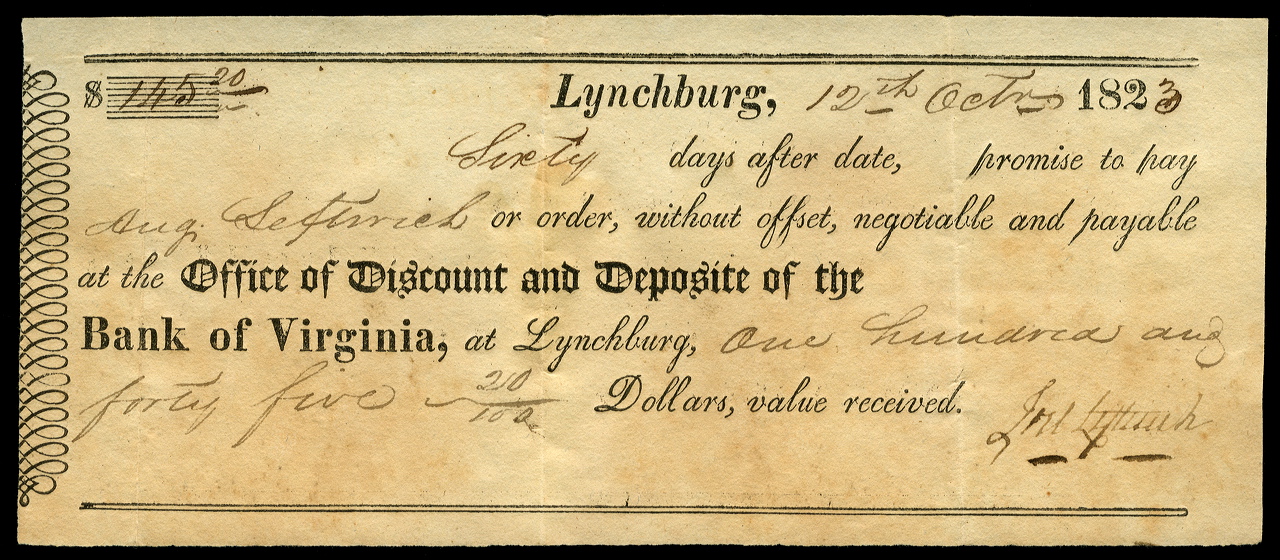 $ 145 20 Lynchburg, 12th Octr 1823
Sixty days after date, promise to pay
Aug. Leftwich or order, without offset, negotiable and payable
at the Office of Discount and Deposite of the
Bank of Virginia, at Lynchburg, One hundred and
forty five 20/100 Dollars, value received.
Leftwich